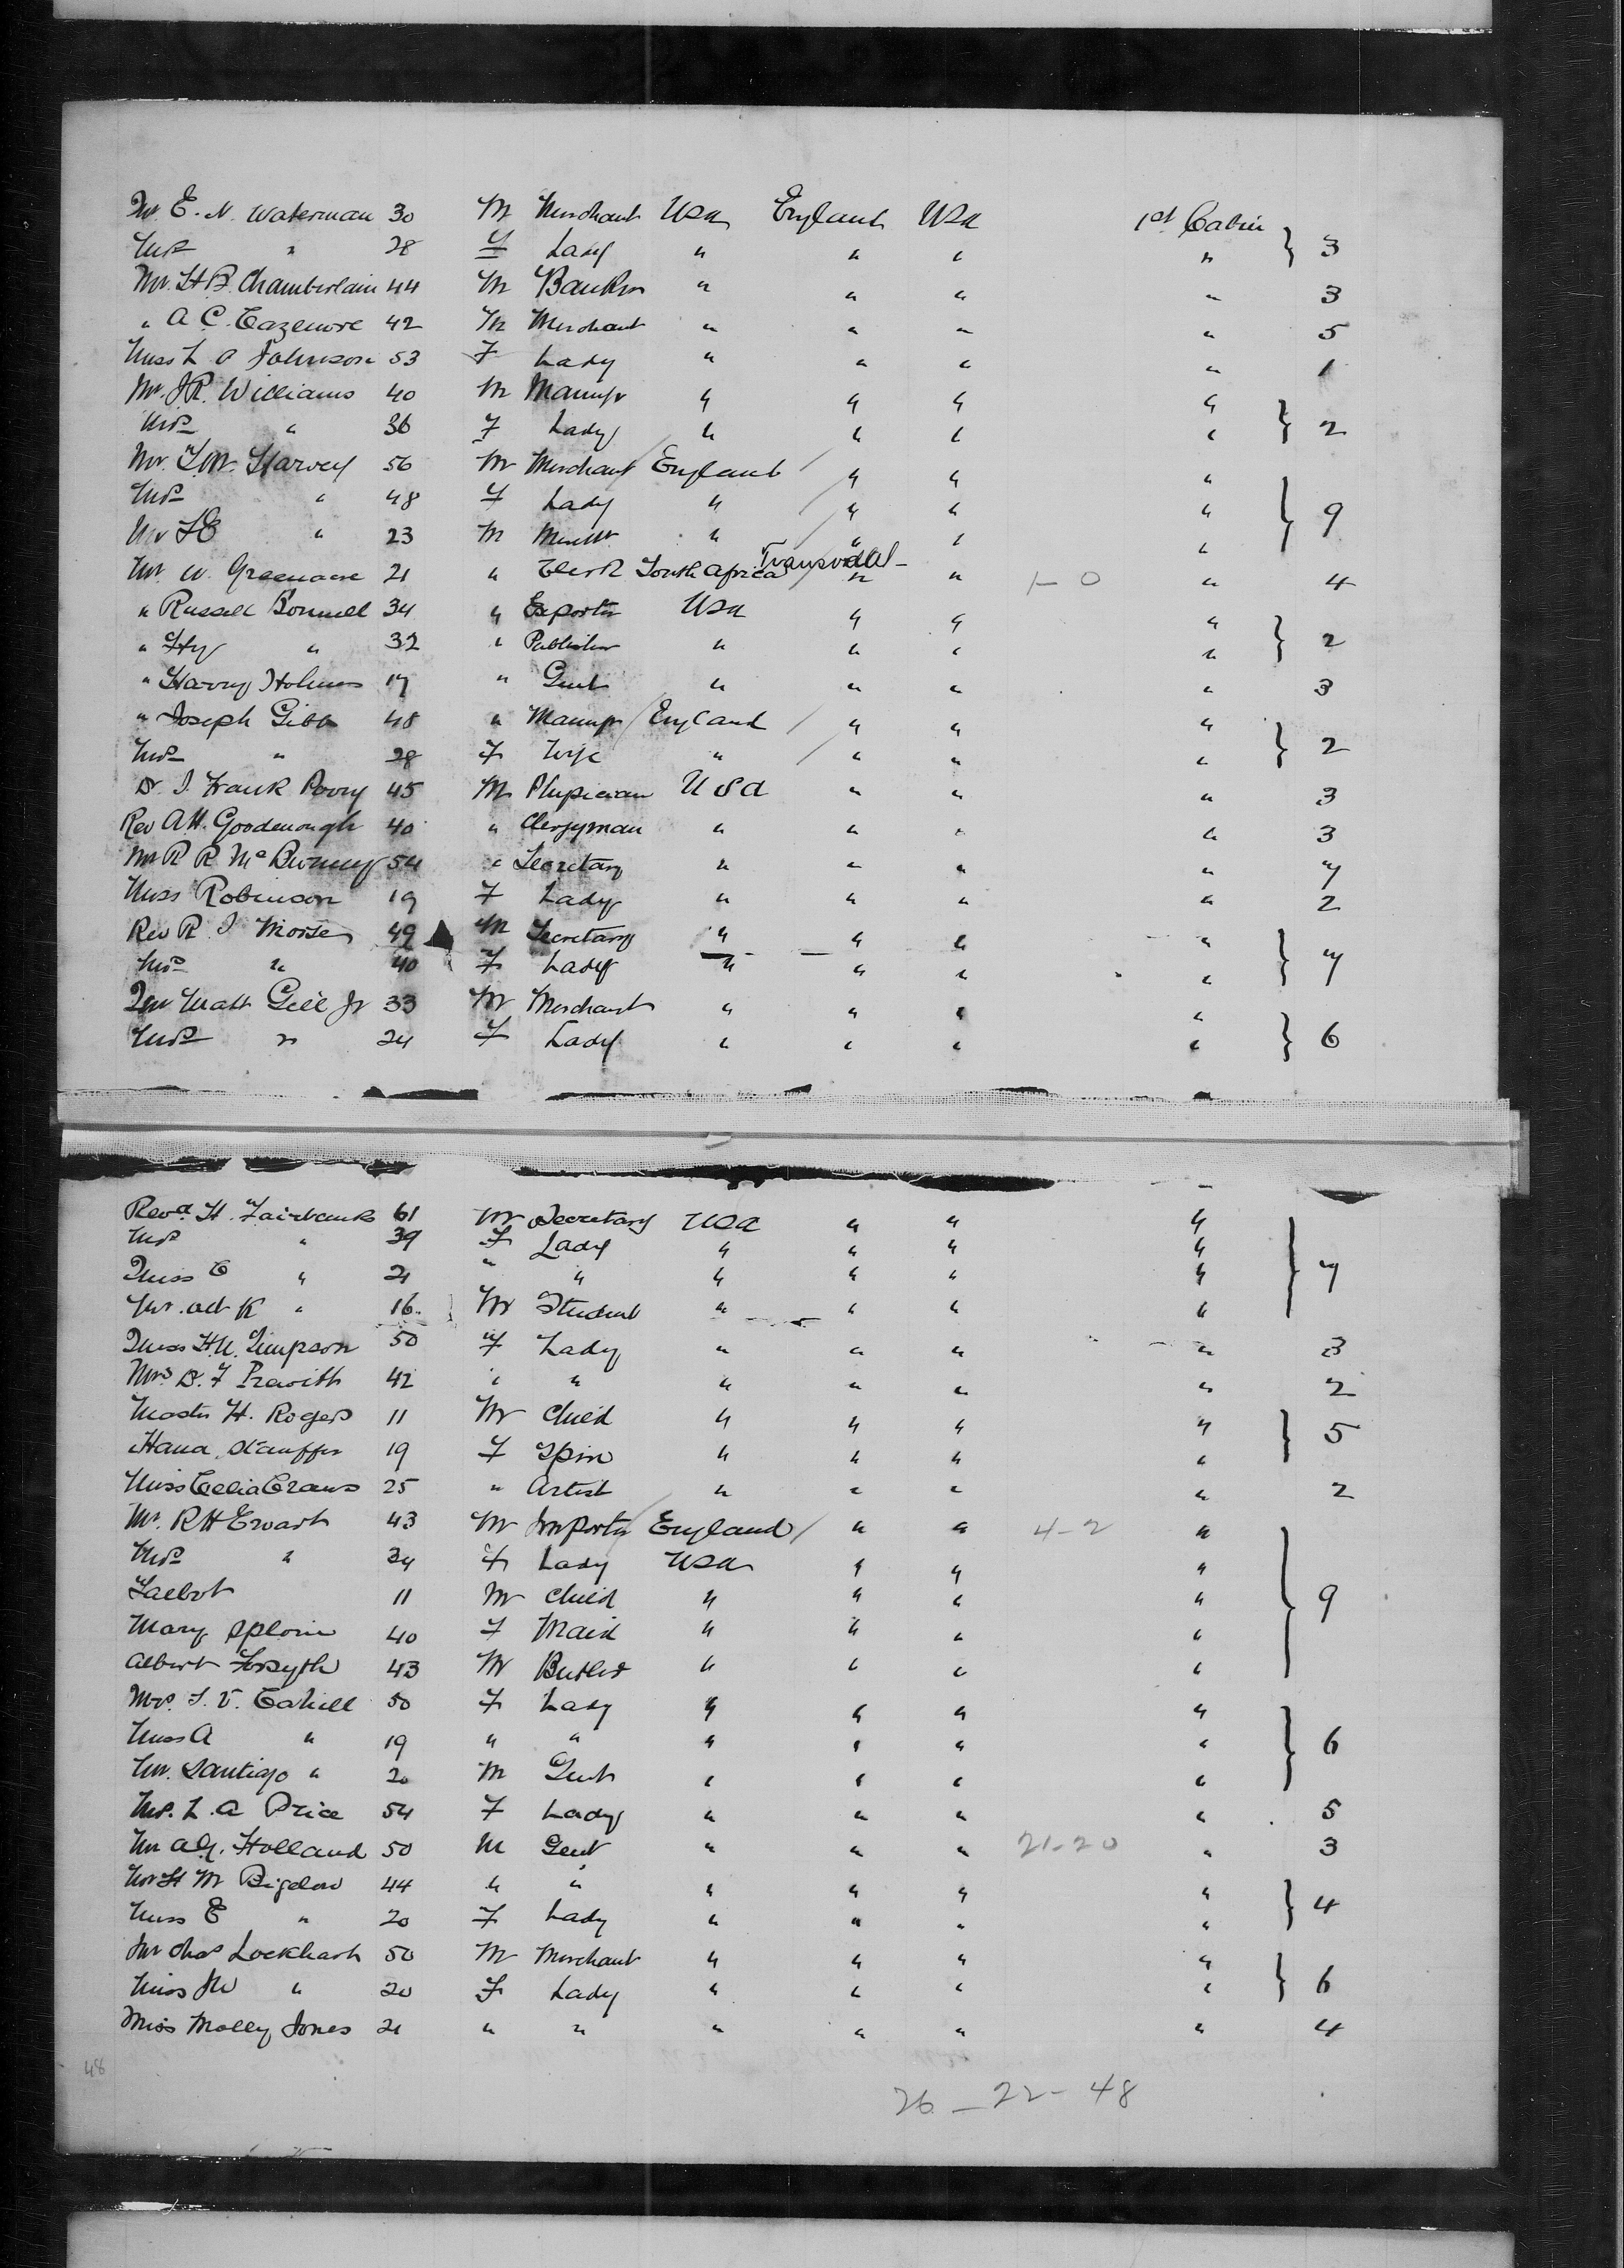 Mr. E. N. Waterman 30 M Merchant USA England USA 1st Cabin
Mrs " 28 F Lady " " " " } 3
Mr. H B. Chamberlain 44 M Banker " " " " 3
" A C. Cazenove 42 M Merchant " " " " 5
Miss L A Johnson 53 F Lady " " " " 1
Mr. J R. Williams 40 M Manufr " " " "
Mrs " 36 F Lady " " " " } 2
Mr. T. W. Harvey 56 M Merchant / England / " " "
Mrs " 48 F Lady " / " " "
Mr " 23 M " / " " " } 9
Mr. W. Greenacre 21 " Clerk South Africa Transvaal - " " 1-0 " 4
" Russell Bonnell 34 " Exporter USA " " "
" Hy " 32 " Publisher " " " " } 2
" Harry Holmes 17 " Gent " " " " 3
" Joseph Gibb 48 " Manufr / England / " " "
Mrs " 28 F Wife " / " " " } 2
Dr. J. Frank Perry 45 M Physician USA " " " 3
Rev A. H. Goodenough 40 " Clergyman " " " " 3
Mr R R McBurney 54 " Secretary " " " " 7
Miss Robinson 19 F Lady " " " " 2
Rev R. J Morse 49 M Secretary " " " "
Mrs " 40 F Lady " " " " } 7
Mr Matt Gill Jr 33 M Merchant " " " "
Mrs " 24 F Lady " " " " } 6
Revd. H. Fairbanks 61 M Secretary USA " " "
Mrs " 39 F Lady " " " "
Miss E " 21 " " " " " " } 7
Mr. K " 16 M Student " " " "
Miss H. M. Simpson 50 F Lady " " " " 3
Mrs. D. F Prewitt 42 " " " " " " 2
Master H. Rogers 11 M Child " " " "
Hana Stauffer 19 F Spin " " " " } 5
Miss Celia Evans 25 " Artist " " " " 2
Mr. R H Ewart 43 M Importer / England / " " 4-2 "
Mrs " 34 F Lady USA " " "
Talbot 11 M Child " " " " } 9
Mary 40 F Maid " " " "
Albert Forsyth 43 M Butler " " " "
Mrs. T. V. Cahill 50 F Lady " " " "
Miss A " 19 " " " " " " } 6
Mr. Santiago " 20 M Gent " " " "
Mrs. L. A Price 54 F Lady " " " " 5
Mr A G. Holland 50 M Gent " " " 21-20 " 3
Mr H M Bigelow 44 " " " " " "
Miss E " 20 F Lady " " " " } 4
Mr Chas Lockhart 50 M Merchant " " " "
Miss " 20 F Lady " " " " } 6
Miss Molly Jones 21 " " " " " " 4
48
26 - 22 - 48